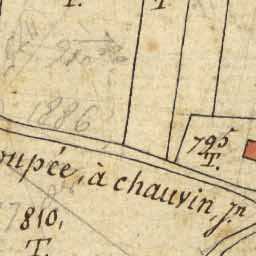 T.
T
1886
795
T.
oupée, à chauvin, Jn
810,
T.